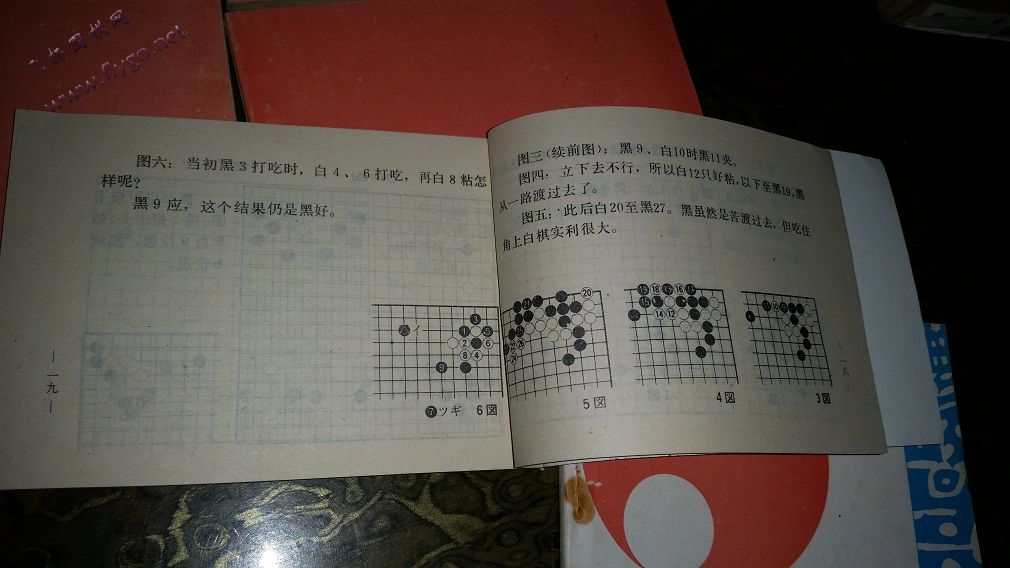 飞扬围棋网
www.flygo.net
图三(续前图)：黑9、白10时黑11夹。
图四：立下去不行，所以白12只好粘，以下至黑19，黑
从一路渡过去了。
图五：此后白20至黑27。黑虽然是苦渡过去，但吃住
角上白棋实利很大。
3図
4図
5図
一八
图六：当初黑3打吃时，白4、6打吃，再白8粘怎
样呢？
黑9应，这个结果仍是黑好。
イ
❼ツギ 6図
一九